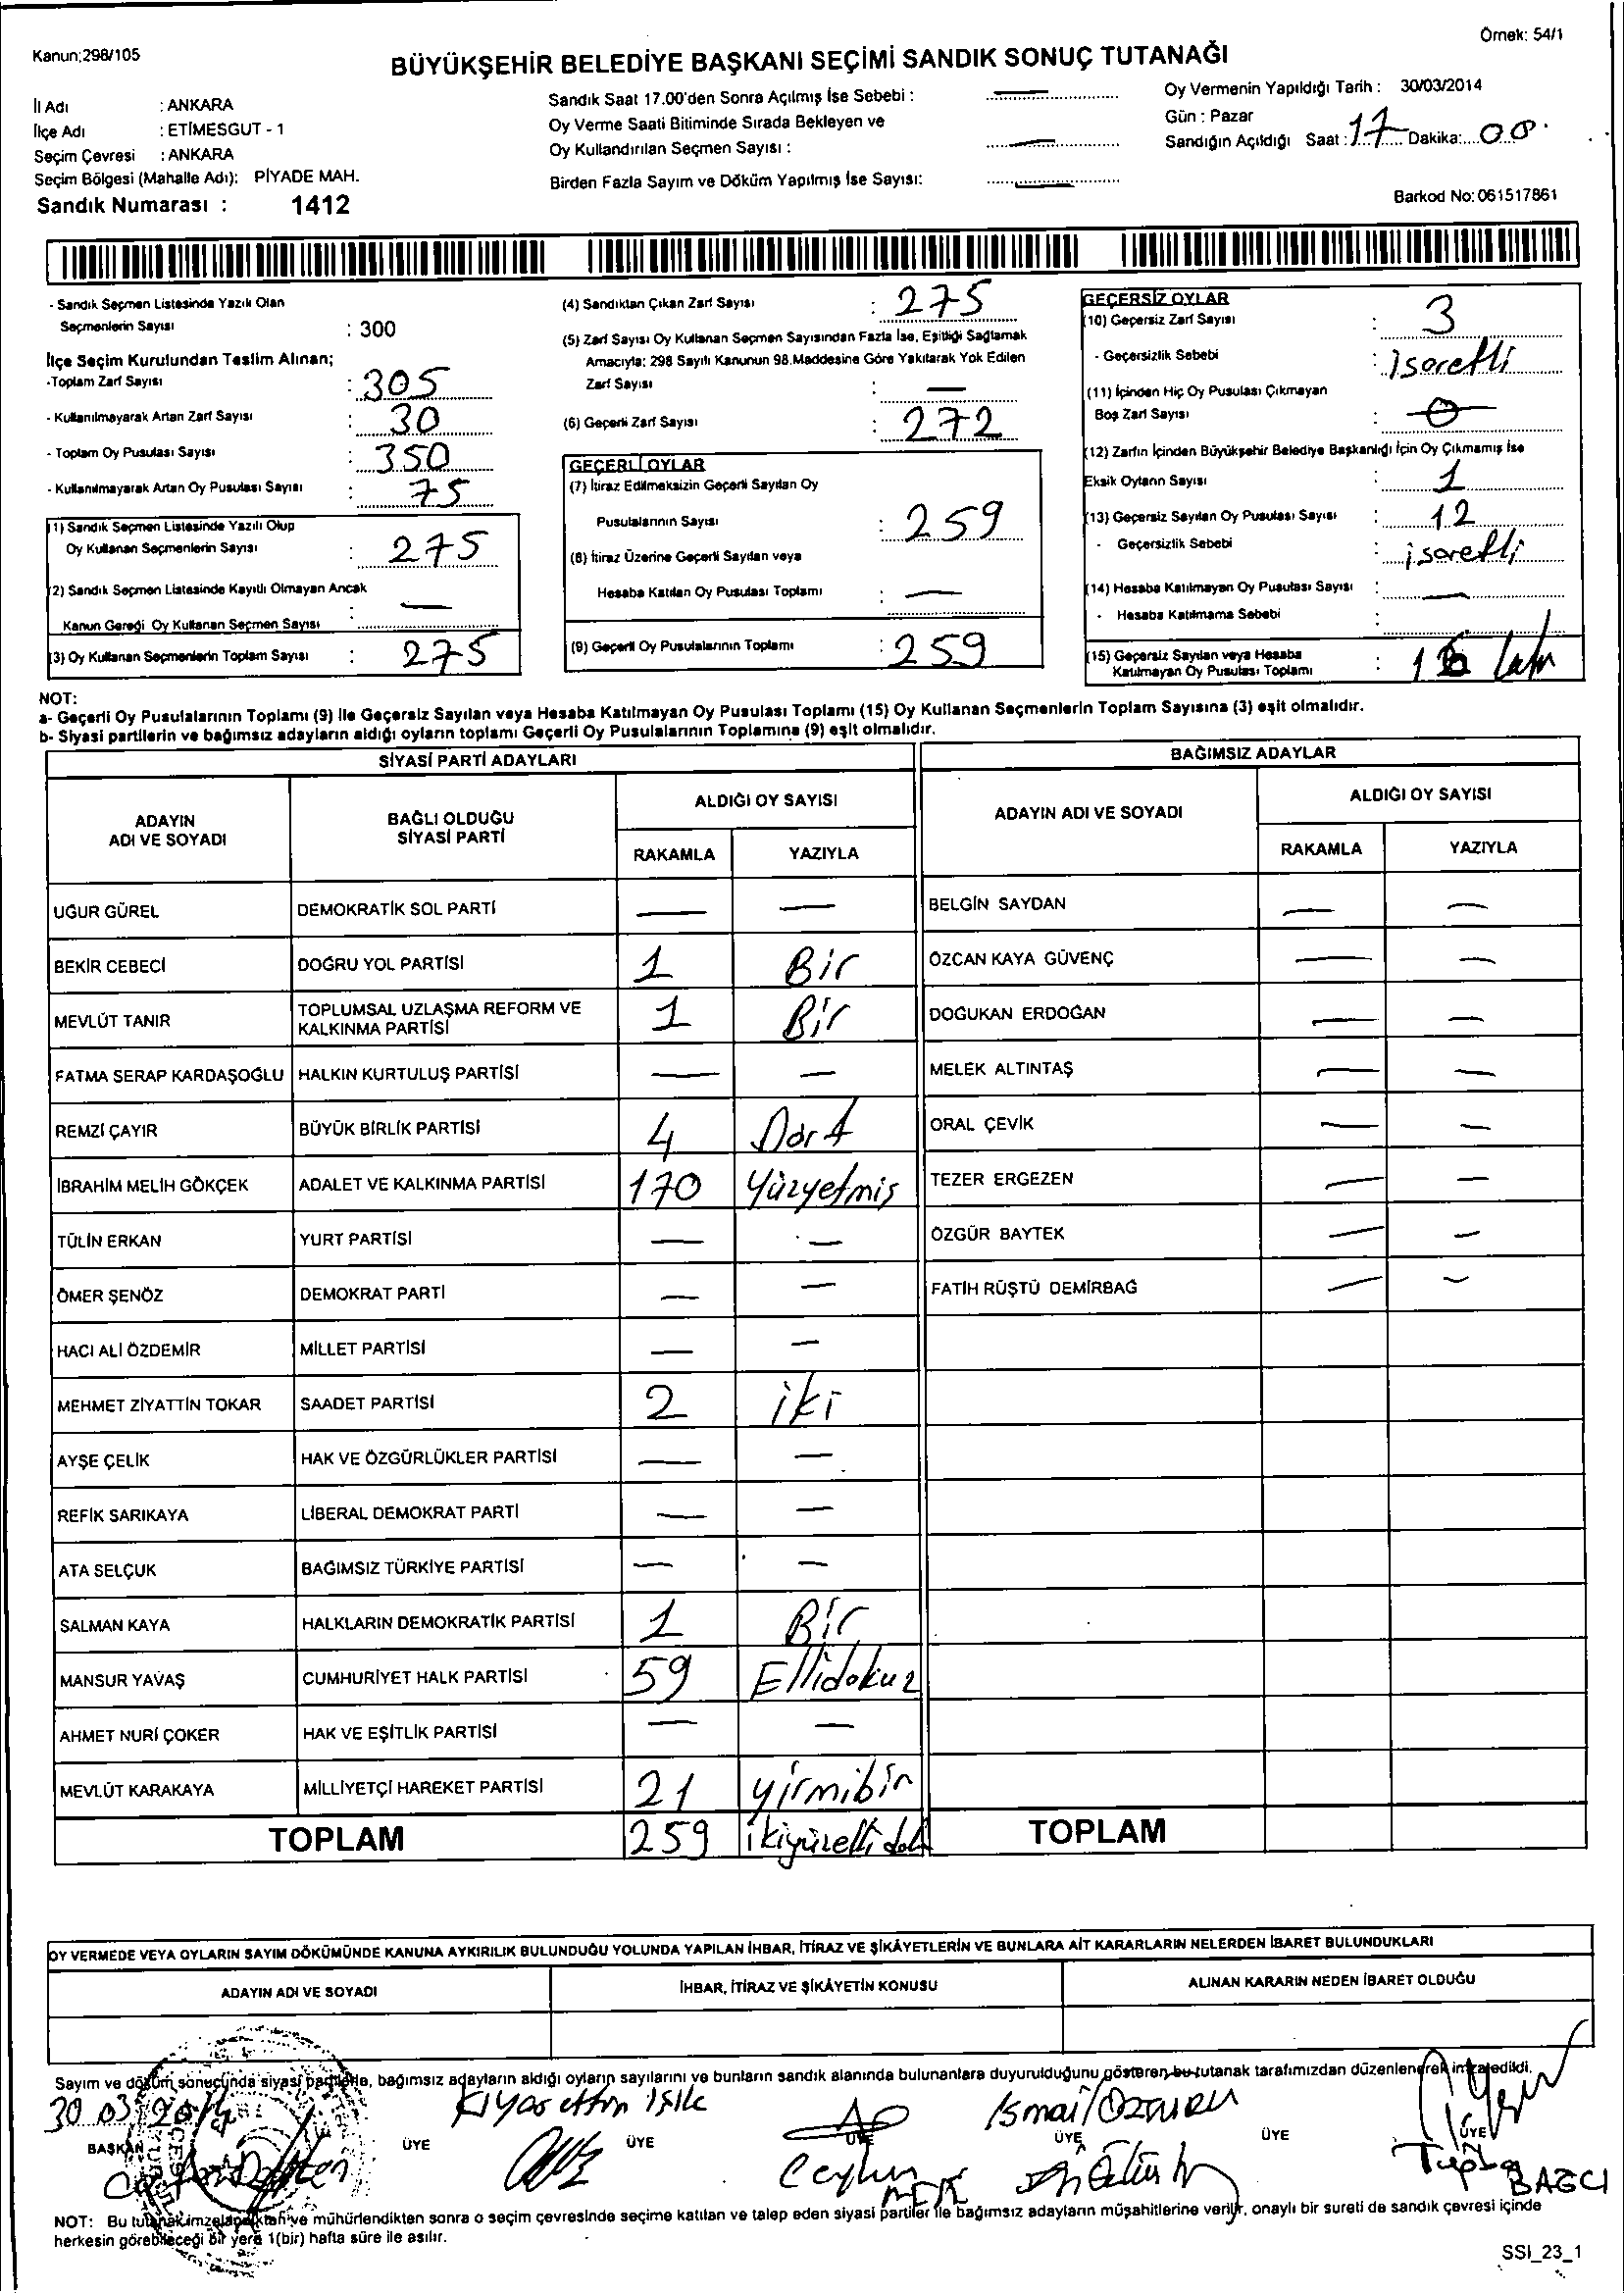 Örnek: 54/1
Kanun;298/105
BÜYÜKŞEHİR BELEDİYE BAŞKANI SEÇİMİ SANDIK SONUÇ TUTANAĞI
İl Adı : ANKARA
İlçe Adı : ETİMESGUT - 1
Seçim Çevresi : ANKARA
Seçim Bölgesi (Mahalle Adı): PİYADE MAH.
Sandık Numarası : 1412
Sandık Saat 17.00'den Sonra Açılmış İse Sebebi : —
Oy Verme Saati Bitiminde Sırada Bekleyen ve
Oy Kullandırılan Seçmen Sayısı : —
Birden Fazla Sayım ve Döküm Yapılmış İse Sayısı: —
Oy Vermenin Yapıldığı Tarih : 30/03/2014
Gün : Pazar
Sandığın Açıldığı Saat : 17 Dakika: 00
Barkod No: 061517861
- Sandık Seçmen Listesinde Yazılı Olan
Seçmenlerin Sayısı : 300
İlçe Seçim Kurulundan Teslim Alınan;
-Toplam Zarf Sayısı : 305
- Kullanılmayarak Artan Zarf Sayısı : 30
- Toplam Oy Pusulası Sayısı : 350
- Kullanılmayarak Artan Oy Pusulası Sayısı : 75
(1) Sandık Seçmen Listesinde Yazılı Olup
Oy Kullanan Seçmenlerin Sayısı : 275
(2) Sandık Seçmen Listesinde Kayıtlı Olmayan Ancak
Kanun Gereği Oy Kullanan Seçmen Sayısı : —
(3) Oy Kullanan Seçmenlerin Toplam Sayısı : 275
(4) Sandıktan Çıkan Zarf Sayısı : 275
(5) Zarf Sayısı Oy Kullanan Seçmen Sayısından Fazla İse, Eşitliği Sağlamak
Amacıyla; 298 Sayılı Kanunun 98.Maddesine Göre Yakılarak Yok Edilen
Zarf Sayısı : —
(6) Geçerli Zarf Sayısı : 272
GEÇERLİ OYLAR
(7) İtiraz Edilmeksizin Geçerli Sayılan Oy
Pusulalarının Sayısı : 259
(8) İtiraz Üzerine Geçerli Sayılan veya
Hesaba Katılan Oy Pusulası Toplamı : —
(9) Geçerli Oy Pusulalarının Toplamı : 259
GEÇERSİZ OYLAR
(10) Geçersiz Zarf Sayısı : 3
- Geçersizlik Sebebi : işaretli
(11) İçinden Hiç Oy Pusulası Çıkmayan
Boş Zarf Sayısı : 0
(12) Zarfın İçinden Büyükşehir Belediye Başkanlığı İçin Oy Çıkmamış İse
Eksik Oyların Sayısı : 1
(13) Geçersiz Sayılan Oy Pusulası Sayısı : 12
- Geçersizlik Sebebi : işaretli
(14) Hesaba Katılmayan Oy Pusulası Sayısı : —
- Hesaba Katılmama Sebebi :
(15) Geçersiz Sayılan veya Hesaba
Katılmayan Oy Pusulası Toplamı : 16
NOT:
a- Geçerli Oy Pusulalarının Toplamı (9) ile Geçersiz Sayılan veya Hesaba Katılmayan Oy Pusulası Toplamı (15) Oy Kullanan Seçmenlerin Toplam Sayısına (3) eşit olmalıdır.
b- Siyasi partilerin ve bağımsız adayların aldığı oyların toplamı Geçerli Oy Pusulalarının Toplamına (9) eşit olmalıdır.
SİYASİ PARTİ ADAYLARI
BAĞIMSIZ ADAYLAR
ADAYIN
ADI VE SOYADI
BAĞLI OLDUĞU
SİYASİ PARTİ
ALDIĞI OY SAYISI
RAKAMLA YAZIYLA
ADAYIN ADI VE SOYADI
ALDIĞI OY SAYISI
RAKAMLA YAZIYLA
UĞUR GÜREL DEMOKRATİK SOL PARTİ — — BELGİN SAYDAN — —
BEKİR CEBECİ DOĞRU YOL PARTİSİ 1 Bir ÖZCAN KAYA GÜVENÇ — —
MEVLÜT TANIR TOPLUMSAL UZLAŞMA REFORM VE
KALKINMA PARTİSİ 1 Bir DOĞUKAN ERDOĞAN — —
FATMA SERAP KARDAŞOĞLU HALKIN KURTULUŞ PARTİSİ — — MELEK ALTINTAŞ — —
REMZİ ÇAYIR BÜYÜK BİRLİK PARTİSİ 4 Dört ORAL ÇEVİK — —
İBRAHİM MELİH GÖKÇEK ADALET VE KALKINMA PARTİSİ 170 Yüzyetmiş TEZER ERGEZEN — —
TÜLİN ERKAN YURT PARTİSİ — — ÖZGÜR BAYTEK — —
ÖMER ŞENÖZ DEMOKRAT PARTİ — — FATİH RÜŞTÜ DEMİRBAĞ — —
HACI ALİ ÖZDEMİR MİLLET PARTİSİ — —
MEHMET ZİYATTİN TOKAR SAADET PARTİSİ 2 iki
AYŞE ÇELİK HAK VE ÖZGÜRLÜKLER PARTİSİ — —
REFİK SARIKAYA LİBERAL DEMOKRAT PARTİ — —
ATA SELÇUK BAĞIMSIZ TÜRKİYE PARTİSİ — —
SALMAN KAYA HALKLARIN DEMOKRATİK PARTİSİ 1 Bir
MANSUR YAVAŞ CUMHURİYET HALK PARTİSİ 59 Ellidokuz
AHMET NURİ ÇOKER HAK VE EŞİTLİK PARTİSİ — —
MEVLÜT KARAKAYA MİLLİYETÇİ HAREKET PARTİSİ 21 yirmibir
TOPLAM 259 ikiyüzelli TOPLAM
OY VERMEDE VEYA OYLARIN SAYIM DÖKÜMÜNDE KANUNA AYKIRILIK BULUNDUĞU YOLUNDA YAPILAN İHBAR, İTİRAZ VE ŞİKÂYETLERİN VE BUNLARA AİT KARARLARIN NELERDEN İBARET BULUNDUKLARI
ADAYIN ADI VE SOYADI İHBAR, İTİRAZ VE ŞİKÂYETİN KONUSU ALINAN KARARIN NEDEN İBARET OLDUĞU
Sayım ve döküm sonucunda siyasi partilerle, bağımsız adayların aldığı oyların sayılarını ve bunların sandık alanında bulunanlara duyurulduğunu gösteren bu tutanak tarafımızdan düzenlenerek imzaedildi.
30 03 2014 Kıyasettin Işık İsmail
BAŞKAN ÜYE ÜYE ÜYE ÜYE ÜYE ÜYE
Ceyhun Tuğba BAĞCI
NOT: Bu tutanak imzalandıktan ve mühürlendikten sonra o seçim çevresinde seçime katılan ve talep eden siyasi partiler ile bağımsız adayların müşahitlerine verilir, onaylı bir sureti de sandık çevresi içinde
herkesin görebileceği bir yere 1(bir) hafta süre ile asılır.
SSI_23_1